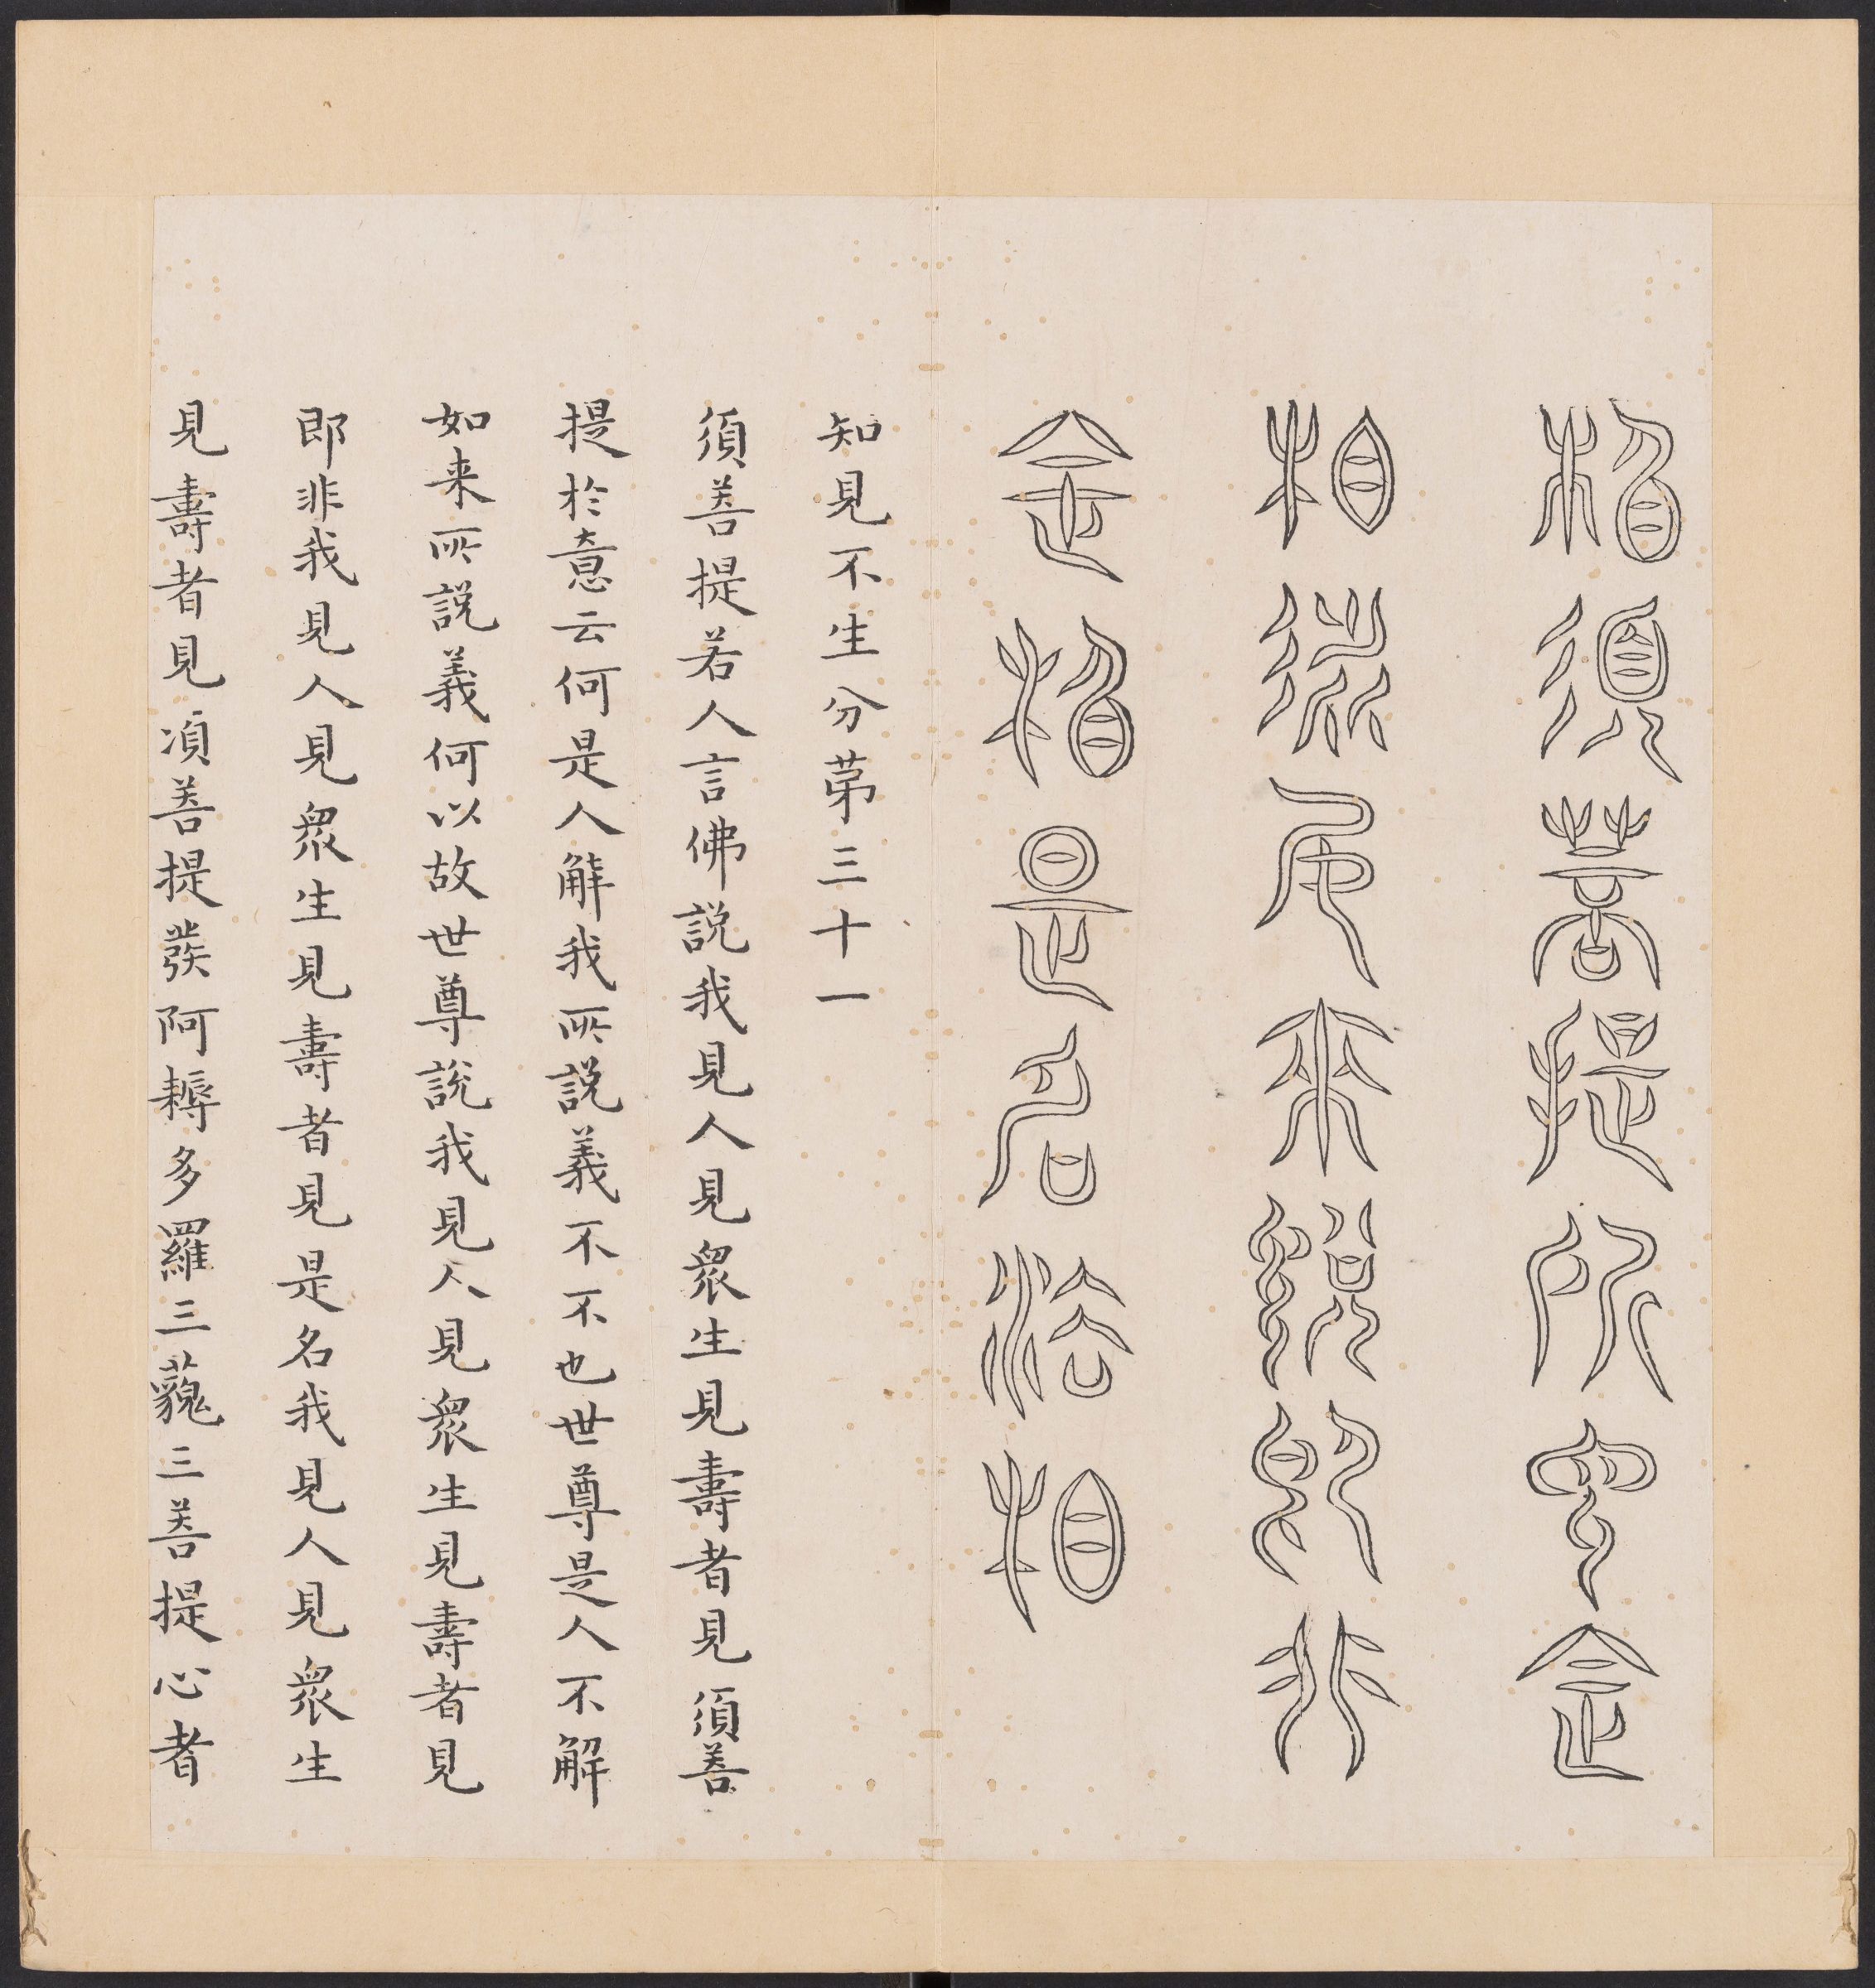 相須菩提所言法
相者如來說即非
法相是名法相
知見不生分苐三十一
須菩提若人言佛說我見人見衆生見壽者見須菩
提於意云何是人解我所說義不不也世尊是人不解
如来所說義何以故世尊說我見人見衆生見壽者見
即非我見人見衆生見壽者見是名我見人見衆生
見壽者見須菩提發阿耨多羅三藐三菩提心者